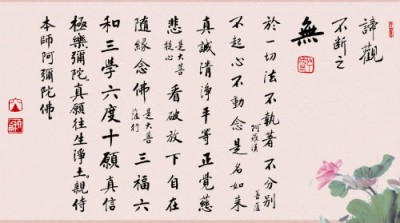 諦觀
不斷之
無
於一切法不執著阿羅漢不分別菩薩
不起心不動念是名如來
真誠清淨平等正覺慈
悲是大菩提心看破放下自在
隨緣念佛是大菩薩行三福六
和三學六度十願真信
極樂彌陀真願往生淨土。親侍
本師阿彌陀佛